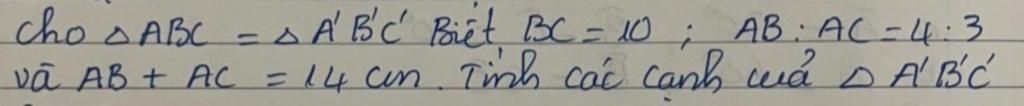 Cho △ ABC = △ A'B'C' Biết BC = 10 ; AB : AC = 4 : 3
và AB + AC = 14 cm. Tính các cạnh của △ A'B'C'